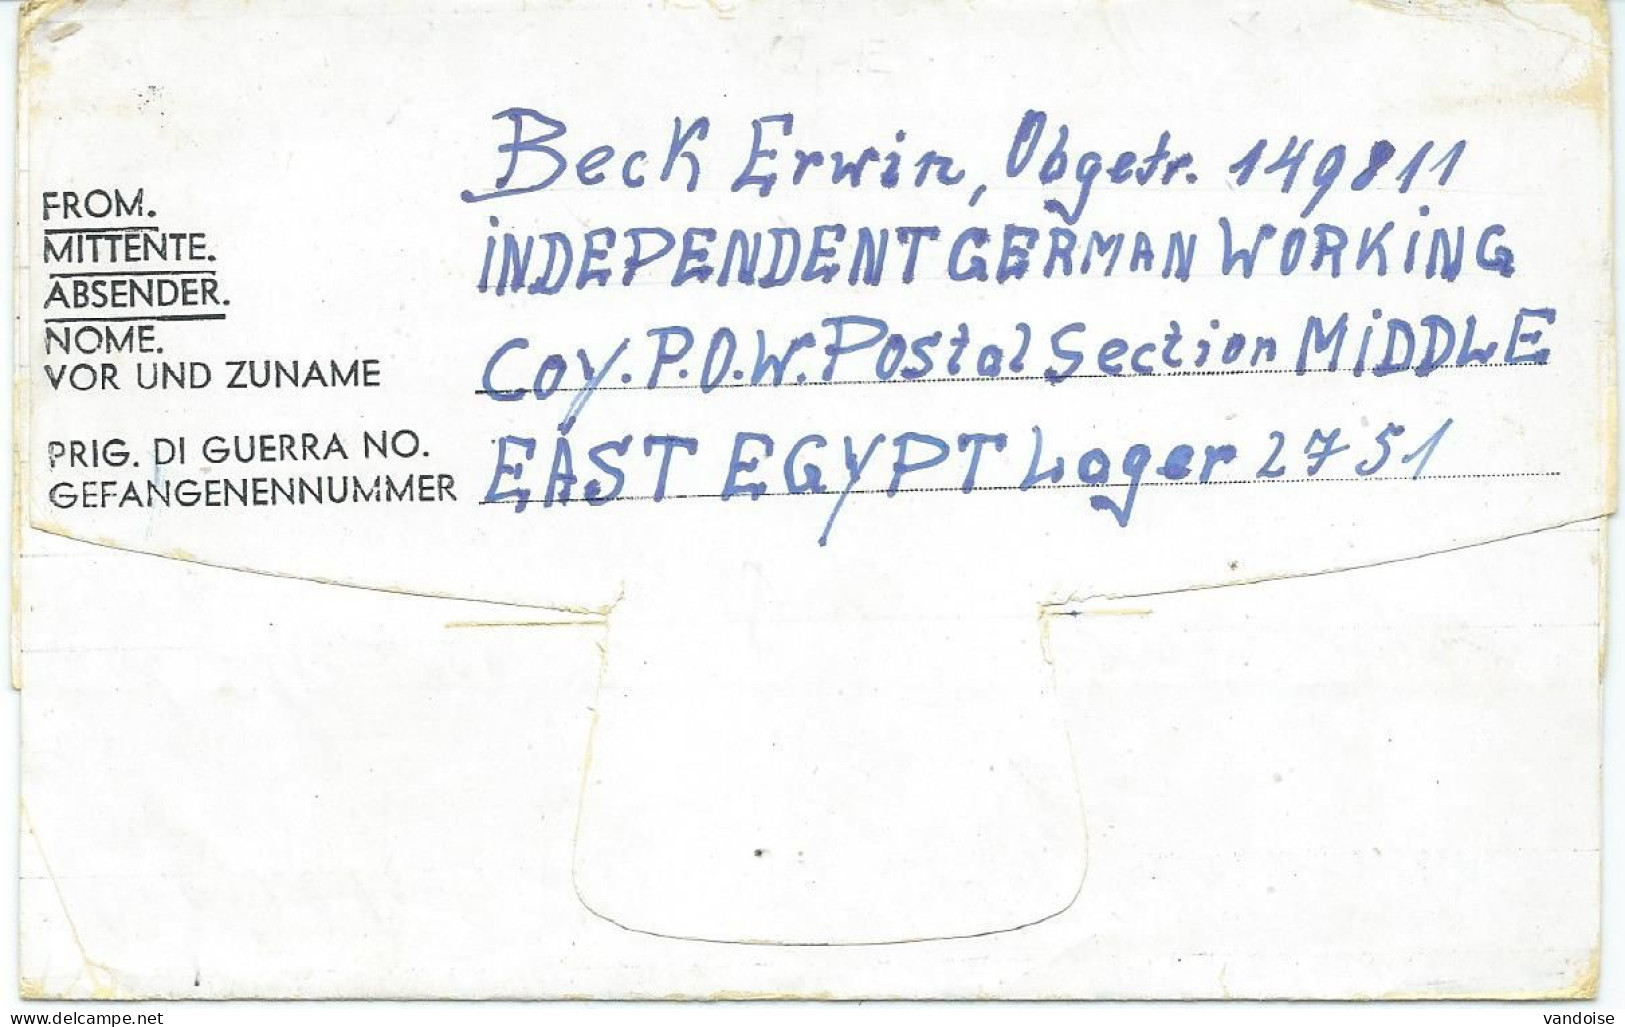 Beck Erwin, Obgefr. 149811
FROM.
MITTENTE.
ABSENDER.
NOME.
VOR UND ZUNAME
INDEPENDENT GERMAN WORKING
Coy. P.O.W. Postal Section MIDDLE
PRIG. DI GUERRA NO.
GEFANGENENNUMMER
EAST EGYPT Lager 2751
www.delcampe.net
vandoise